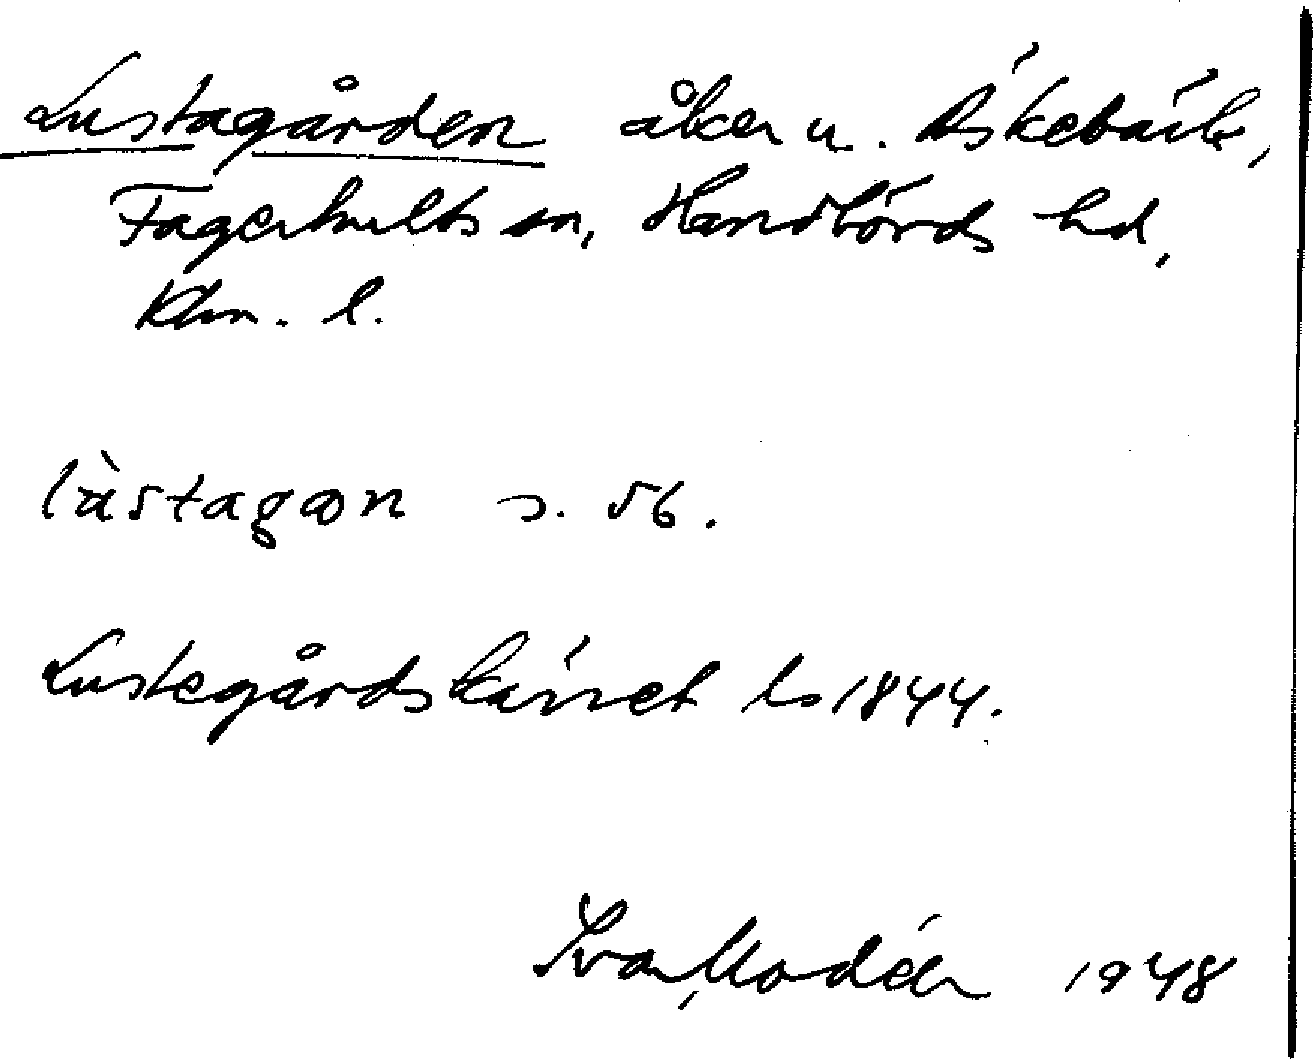 Lustagården åker u. Äskebäck,
Fagerhults sn, Handbörds hd,
Klm. l.
s. 56.
Lustegårdskärret ls 1844.
Ivar Modéer 1948